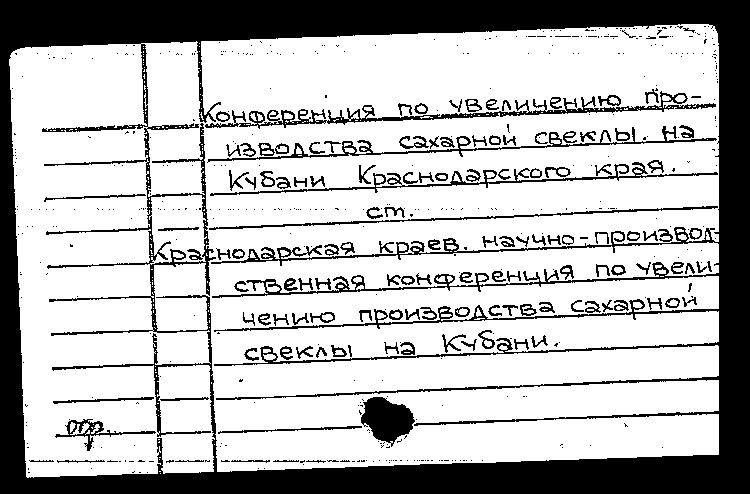 Конференция по увеличению про-
изводства сахарной свеклы. на
Кубани Краснодарского края.
ст.
Краснодарская краев. научно-производ-
ственная конференция по увели-
чению производства сахарной
свеклы на Кубани.